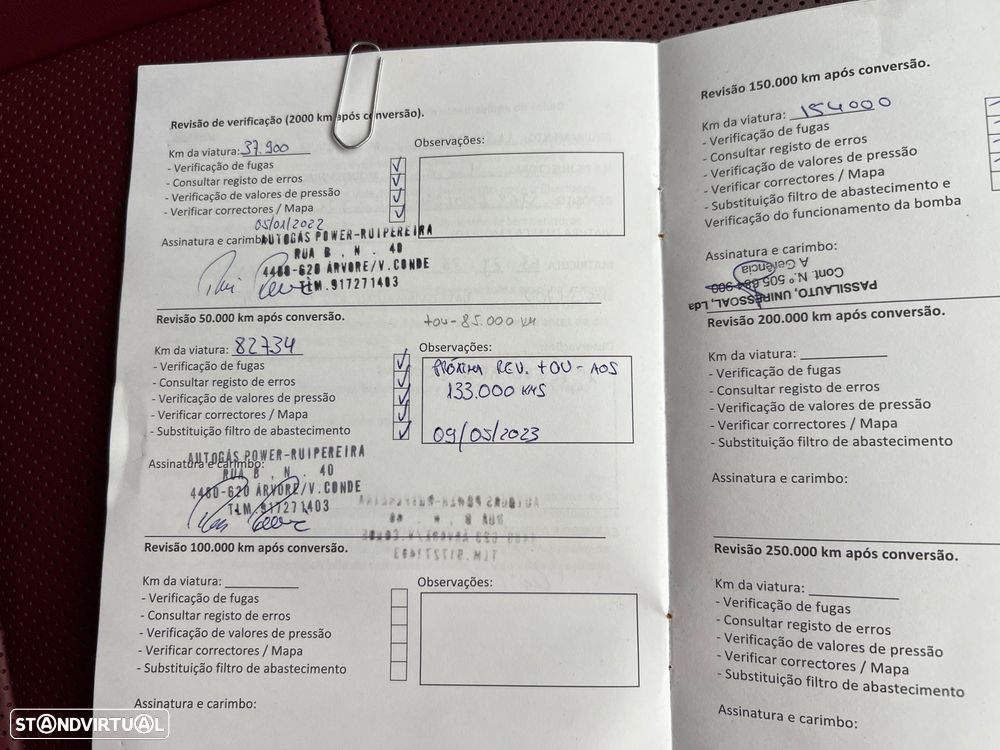 Revisão de verificação (2000 km após conversão).
Km da viatura: 37.900
Observações:
- Verificação de fugas
- Consultar registo de erros
- Verificação de valores de pressão
- Verificar correctores / Mapa
05/01/2022
Assinatura e carimbo:
AUTOGÁS POWER-RUIPEREIRA
RUA B , N . 40
4480-620 ÁRVORE/V.CONDE
TLM.917271403
Revisão 50.000 km após conversão.
+OU-85.000 KM
Km da viatura: 82734
Observações:
- Verificação de fugas
- Consultar registo de erros
- Verificação de valores de pressão
- Verificar correctores / Mapa
- Substituição filtro de abastecimento
PRÓXIMA REV. +OU-AOS
133.000 KMS
09/05/2023
Assinatura e carimbo:
AUTOGÁS POWER-RUIPEREIRA
RUA B , N . 40
4480-620 ÁRVORE/V.CONDE
TLM.917271403
Revisão 100.000 km após conversão.
Km da viatura:
Observações:
- Verificação de fugas
- Consultar registo de erros
- Verificação de valores de pressão
- Verificar correctores / Mapa
- Substituição filtro de abastecimento
Assinatura e carimbo:
Revisão 150.000 km após conversão.
Km da viatura: 154000
- Verificação de fugas
- Consultar registo de erros
- Verificação de valores de pressão
- Verificar correctores / Mapa
- Substituição filtro de abastecimento e
Verificação do funcionamento da bomba
Assinatura e carimbo:
PASSILAUTO, UNIPESSOAL, Lda
Cont. N.º 505 684 900
A Gerência
Revisão 200.000 km após conversão.
Km da viatura:
- Verificação de fugas
- Consultar registo de erros
- Verificação de valores de pressão
- Verificar correctores / Mapa
- Substituição filtro de abastecimento
Assinatura e carimbo:
Revisão 250.000 km após conversão.
Km da viatura:
- Verificação de fugas
- Consultar registo de erros
- Verificação de valores de pressão
- Verificar correctores / Mapa
- Substituição filtro de abastecimento
Assinatura e carimbo:
STANDVIRTUAL